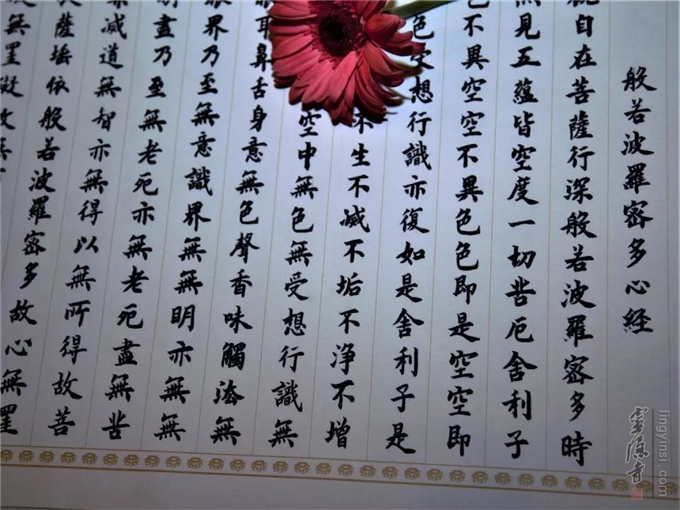 般若波羅密多心經
觀自在菩薩行深般若波羅密多時
照見五蘊皆空度一切苦厄舍利子
色不異空空不異色色即是空空即
色受想行識亦復如是舍利子是
不生不滅不垢不净不增
空中無色無受想行識無
眼耳鼻舌身意無色聲香味觸法無
眼界乃至無意識界無無明亦無無
明盡乃至無老死亦無老死盡無苦
滅道無智亦無得以無所得故菩
薩埵依般若波羅密多故心無罣
無罣礙故無
靈隱寺
lingyinsi.com